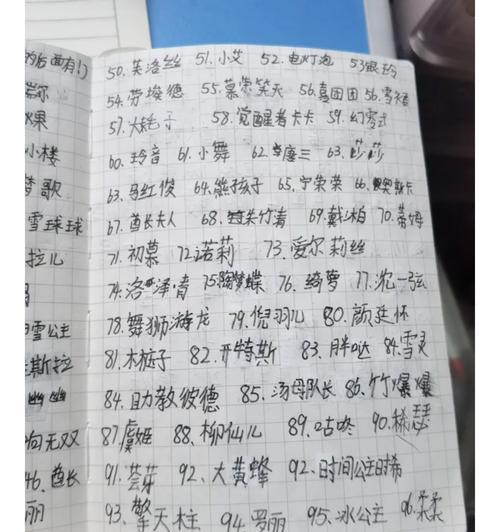 后面有!)
尔
果
小楼
梦歌
雪球球
拉儿
雪公主
斯拉
幽幽
向无双
46.酋长
丽
50.芙洛丝 51.小艾 52.电灯泡 53银玲
54.劳埃德 55.慕容笑天 56.喜团团 56.雪
57.大耗子 58.觉醒者卡卡 59.幻零式
60.玲音 61.小舞 62.唐三 63.莎莎
63.马红俊 64.熊孩子 65.宁荣荣 66.奥斯卡
67.酋长夫人 68.朱竹清 69.戴沐柏 70.蒂姆
71.初慕 72.诺莉 73.爱尔莉丝
74.洛泽青 75.陶梦蝶 76.绮萝 77.沈一弦
78.舞狮游龙 79.倪羽儿 80.颜延怀
81.木桩子 82.开特斯 83.胖哒 84.雪灵
84.助教彼德 85.汤母队长 86.竹爆爆
87.虞姬 88.柳仙儿 89.咕咚 90.稀瑟
91.芸芽 92.大黄蜂 92.时间公主时稀
93.擎天柱 94.罗丽 95.冰公主 96.柔柔